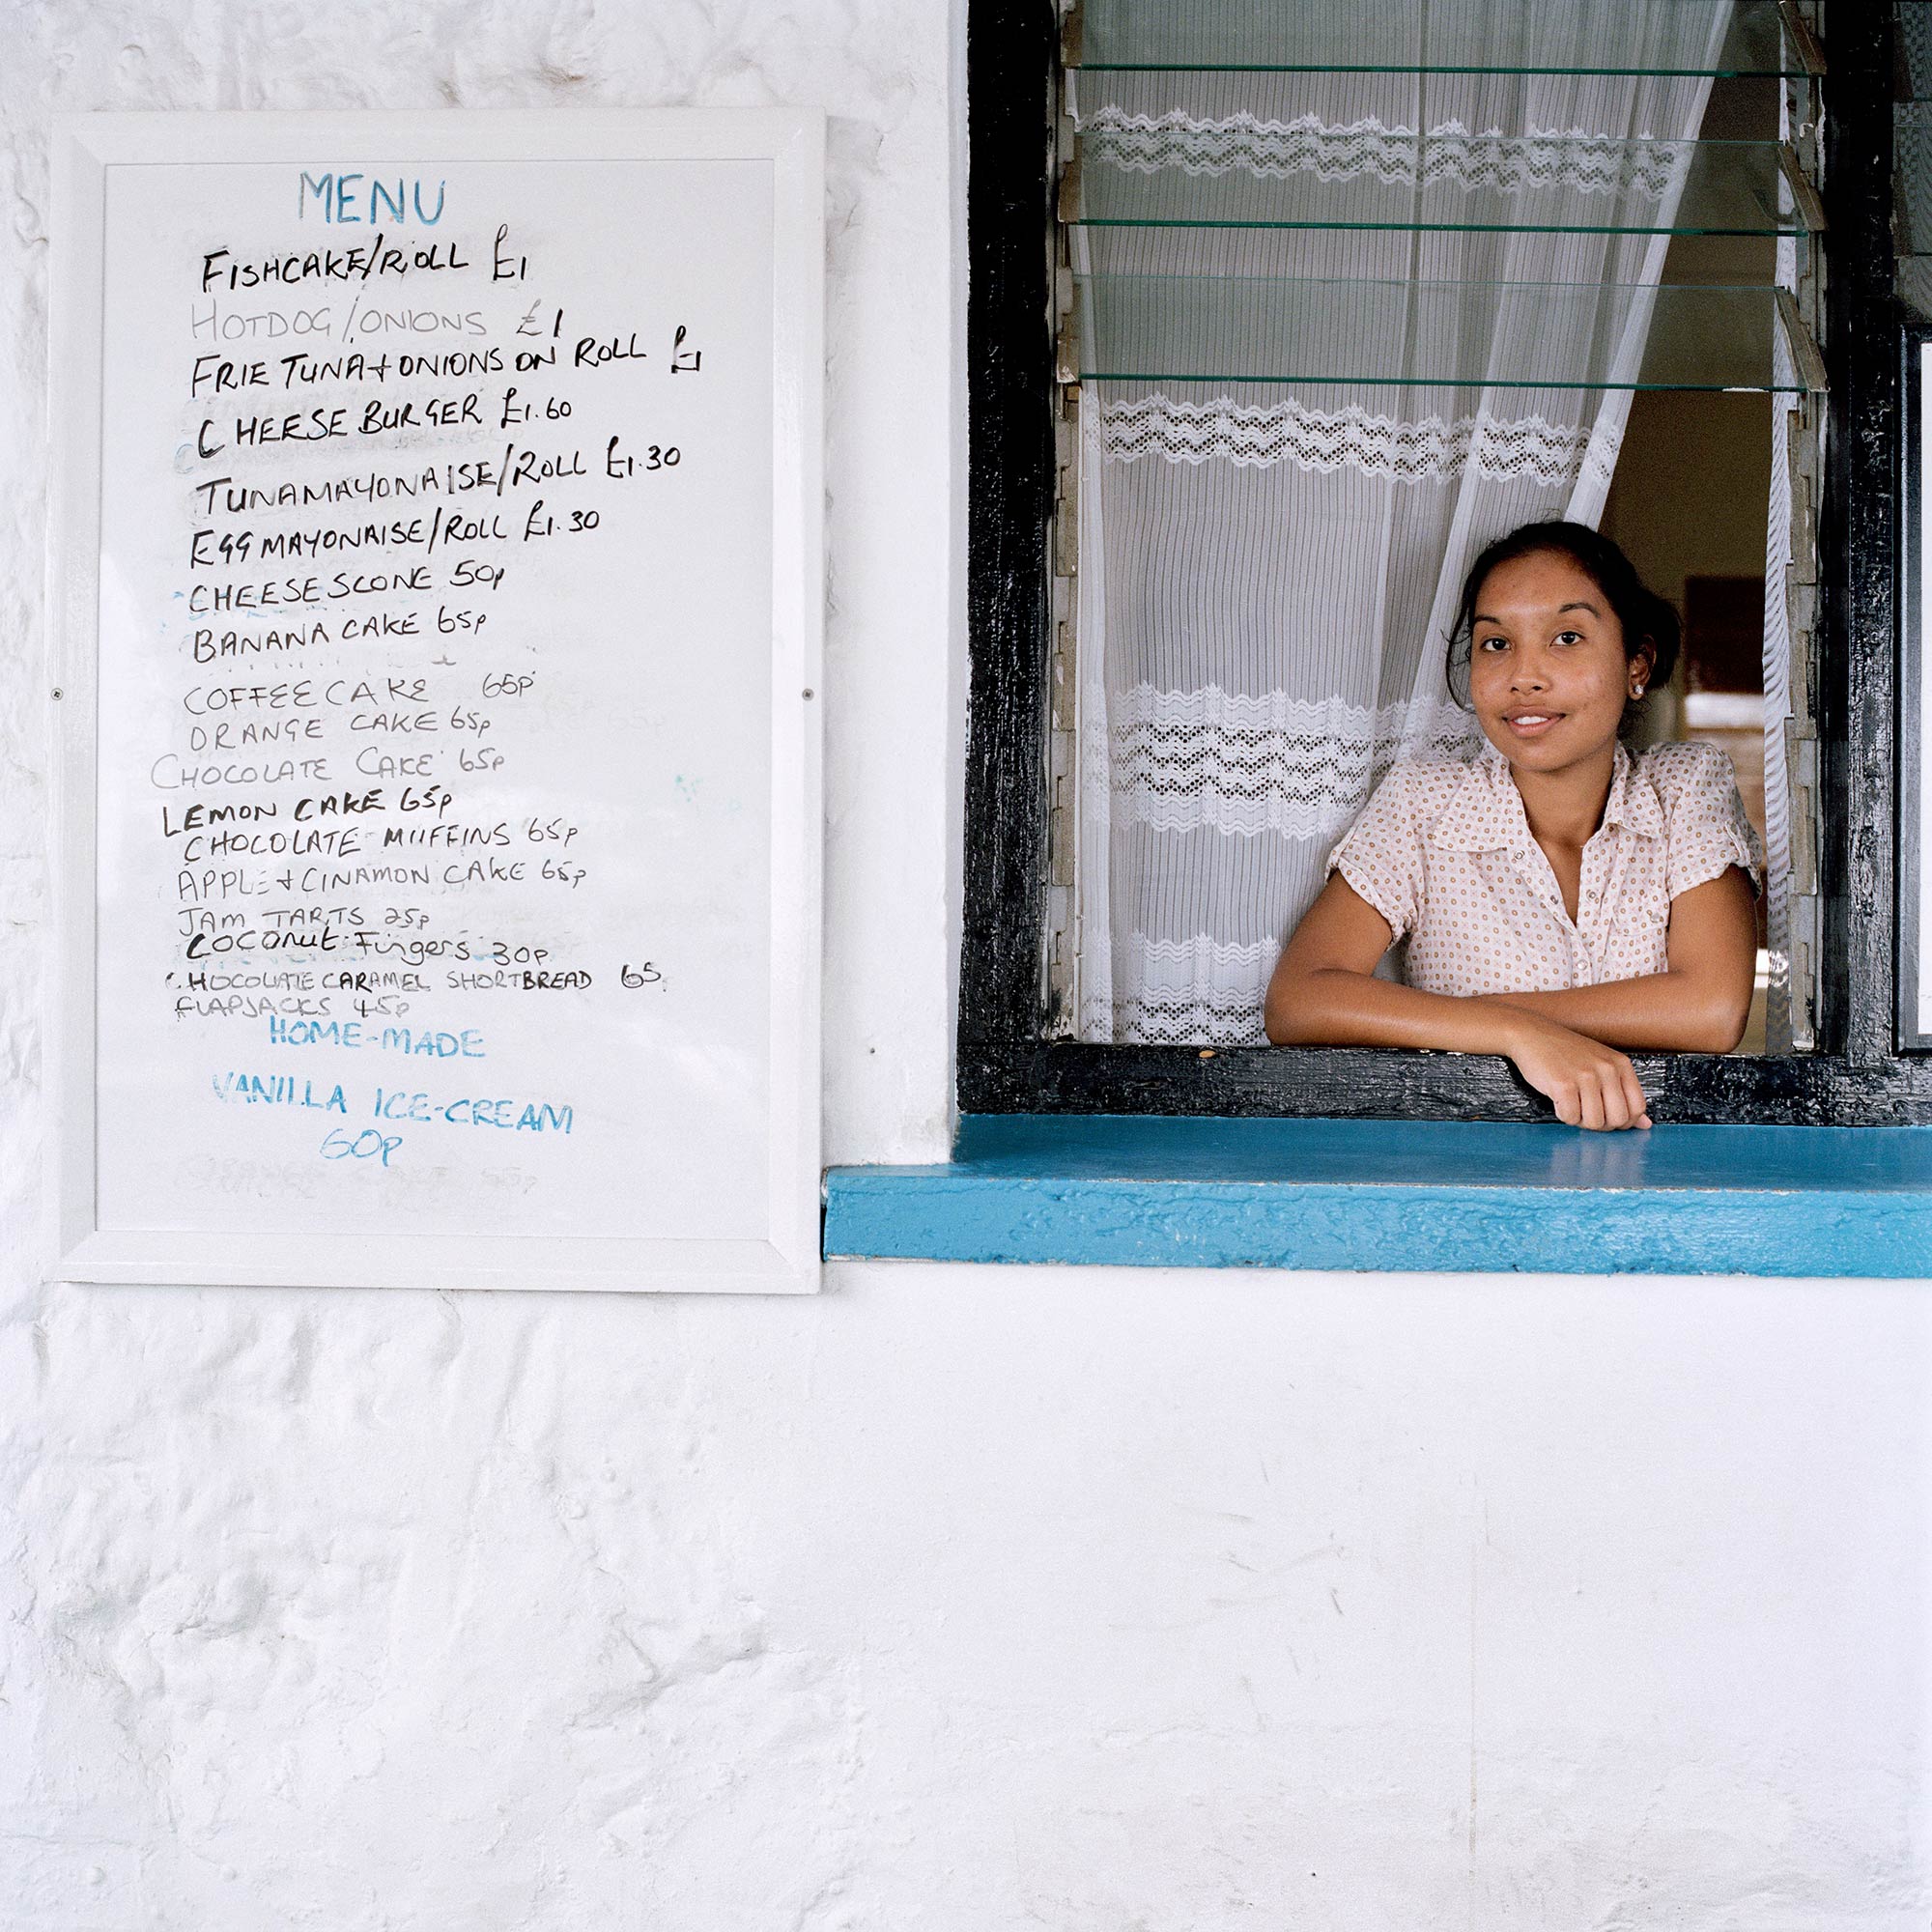 MENU
FISHCAKE/ROLL £1
HOTDOG/ONIONS £1
FRIE TUNA+ONIONS ON ROLL £1
CHEESE BURGER £1.60
TUNAMAYONAISE/ROLL £1.30
EGG MAYONAISE/ROLL £1.30
CHEESE SCONE 50p
BANANA CAKE 65p
COFFEE CAKE 65P
ORANGE CAKE 65p
CHOCOLATE CAKE 65p
LEMON CAKE 65p
CHOCOLATE MUFFINS 65p
APPLE+CINAMON CAKE 65p
JAM TARTS 25p
COCONUT FINGERS 30P
CHOCOLATE CARAMEL SHORTBREAD 65
FLAPJACKS 45p
HOME-MADE
VANILLA ICE-CREAM
60p